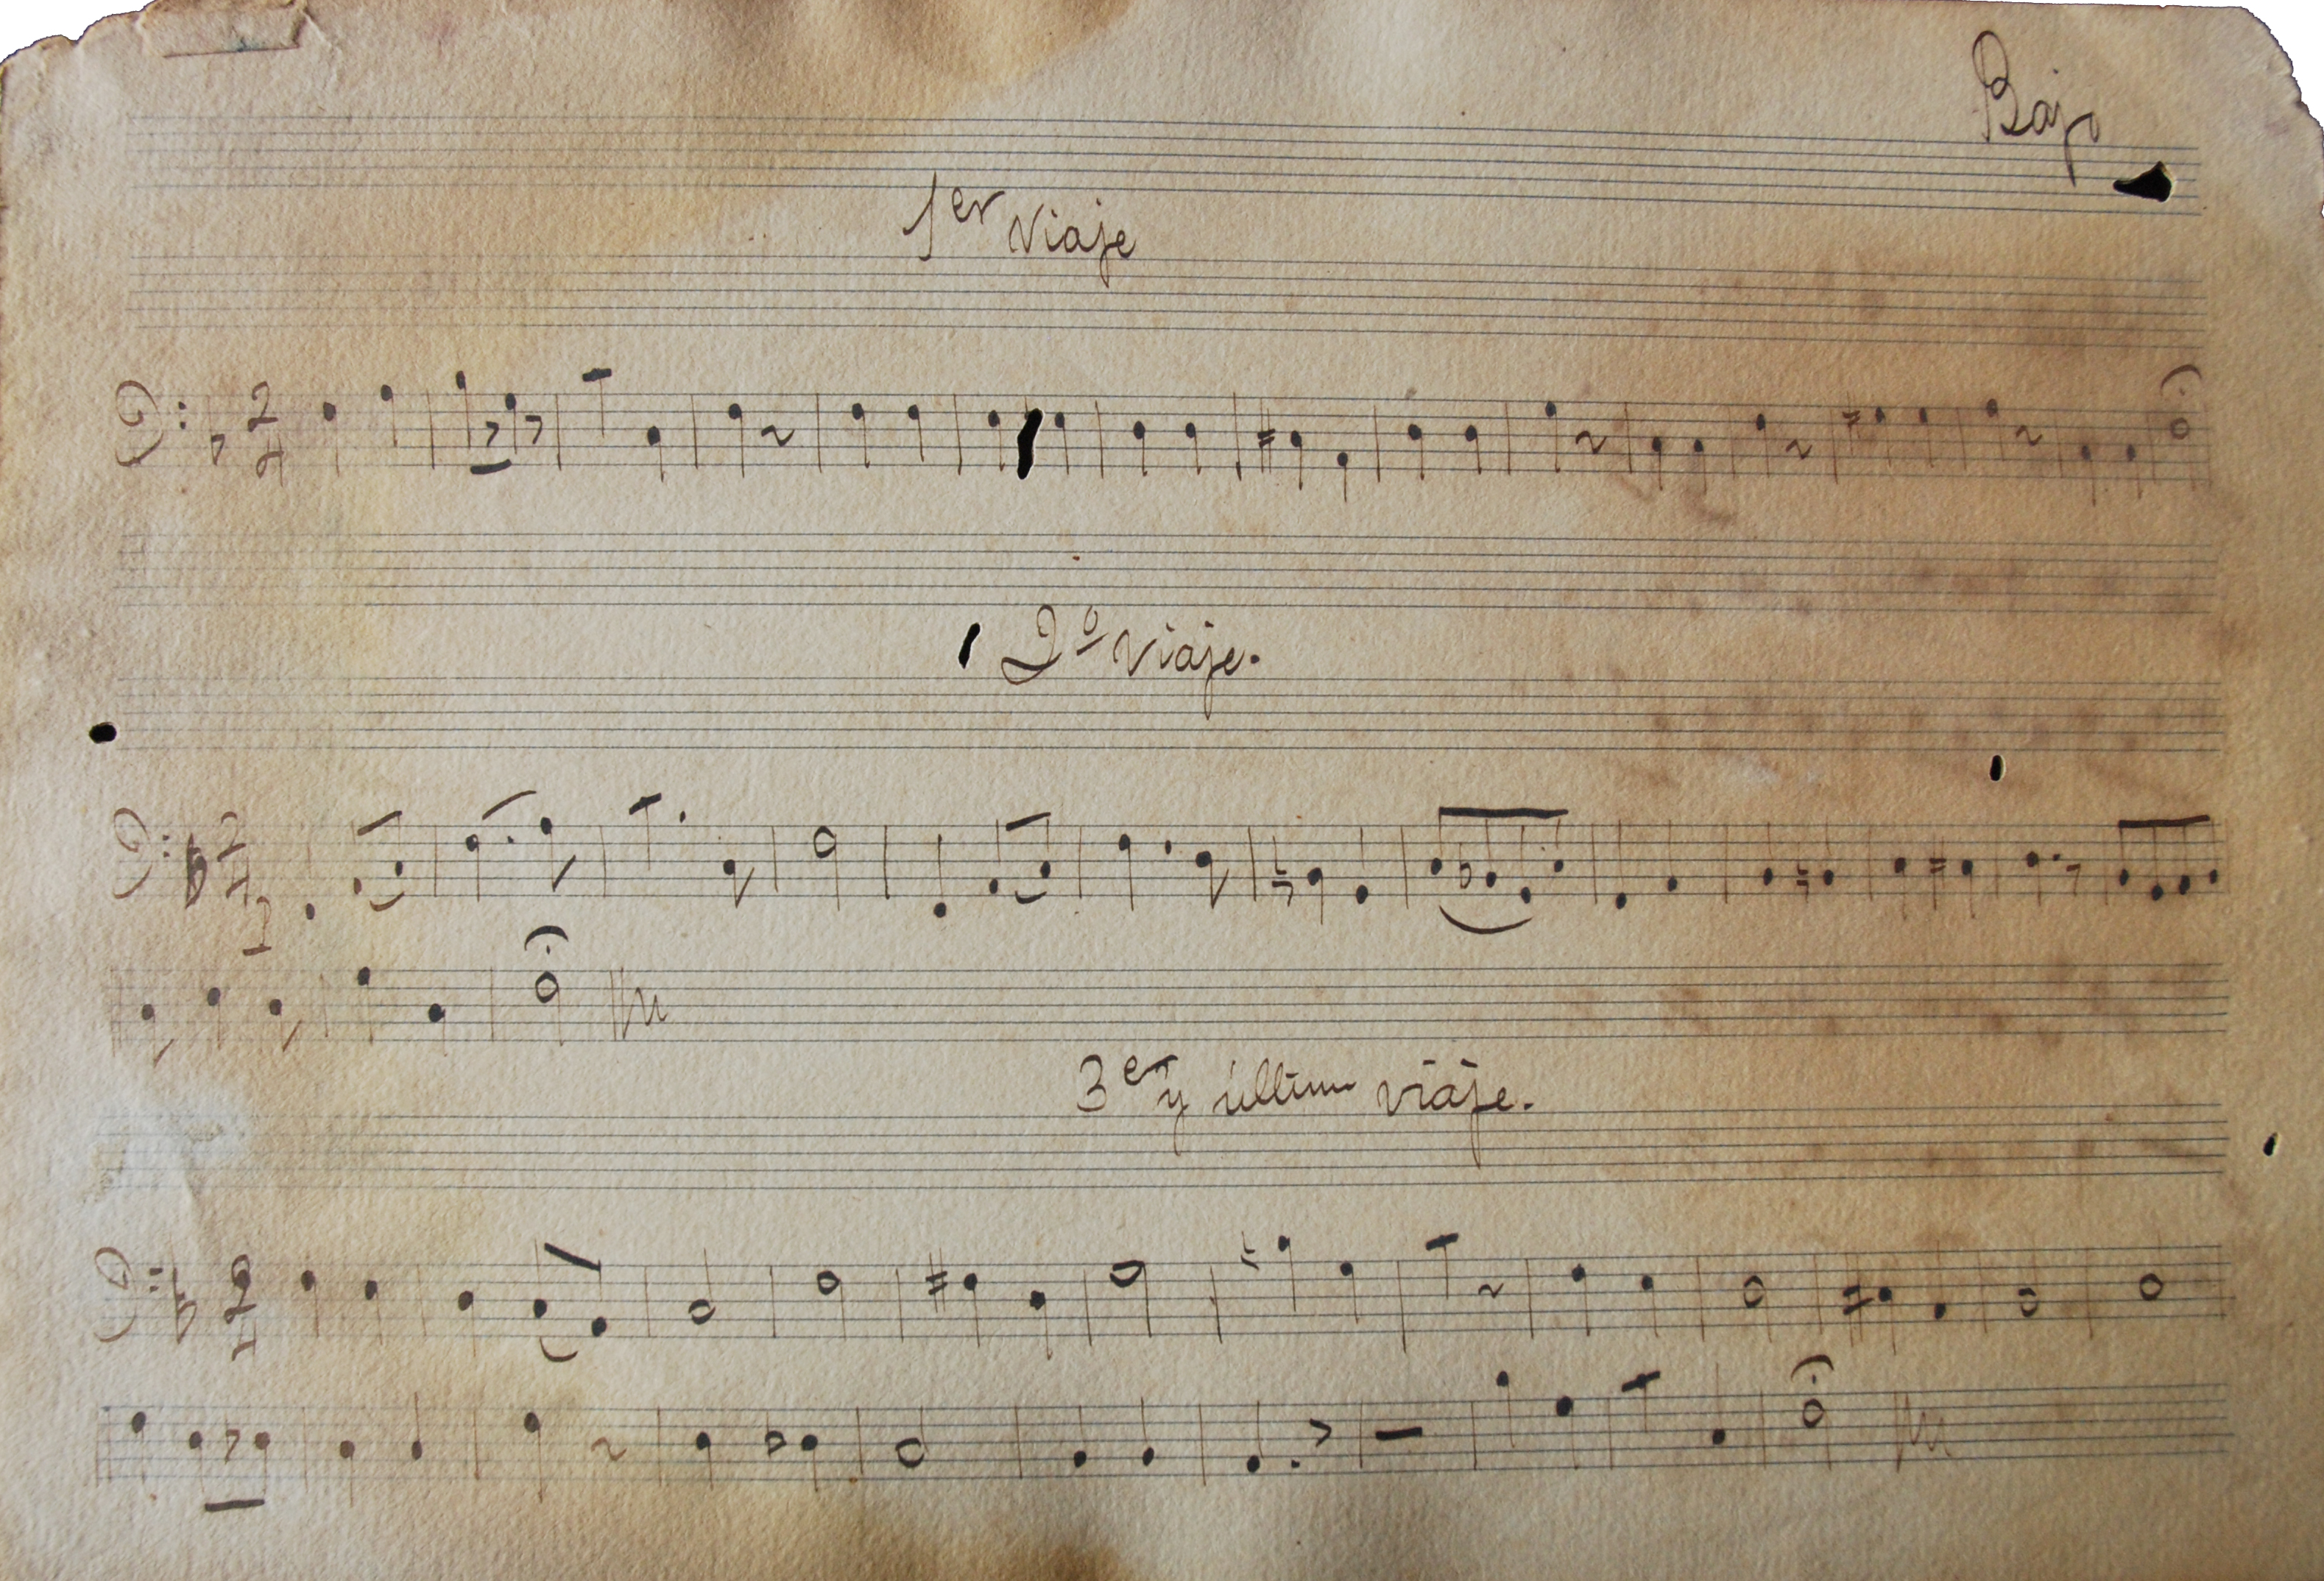 Bajo
1er viaje
2º viaje.
3er y último viaje.